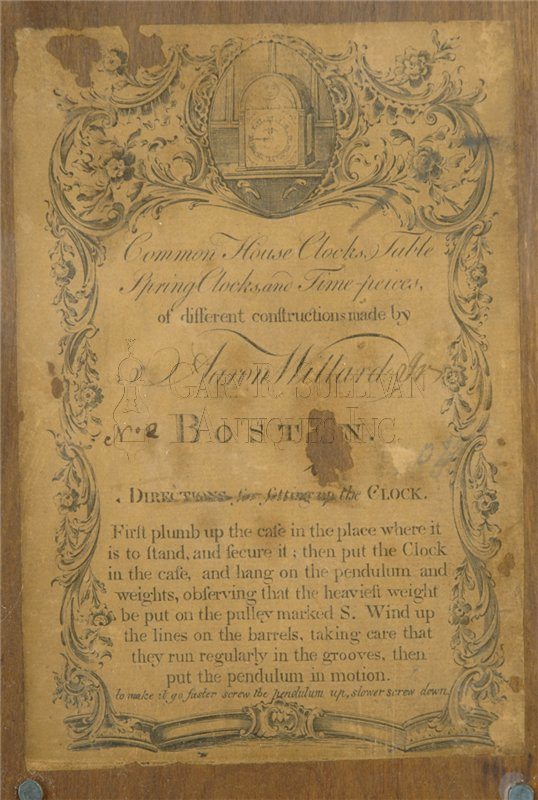 Common House Clocks, Table
Spring Clocks, and Time-peices,
of different conſtructions made by
Aaron Willard Jr
GARY R. SULLIVAN
ANTIQUES INC.
No. 2 BOSTON.
DIRECTIONS for ſetting up the CLOCK.
Firſt plumb up the caſe in the place where it
is to ſtand, and ſecure it; then put the Clock
in the caſe, and hang on the pendulum and
weights, obſerving that the heavieſt weight
be put on the pulley marked S. Wind up
the lines on the barrels, taking care that
they run regularly in the grooves, then
put the pendulum in motion.
to make it go faster screw the pendulum up, slower screw down.